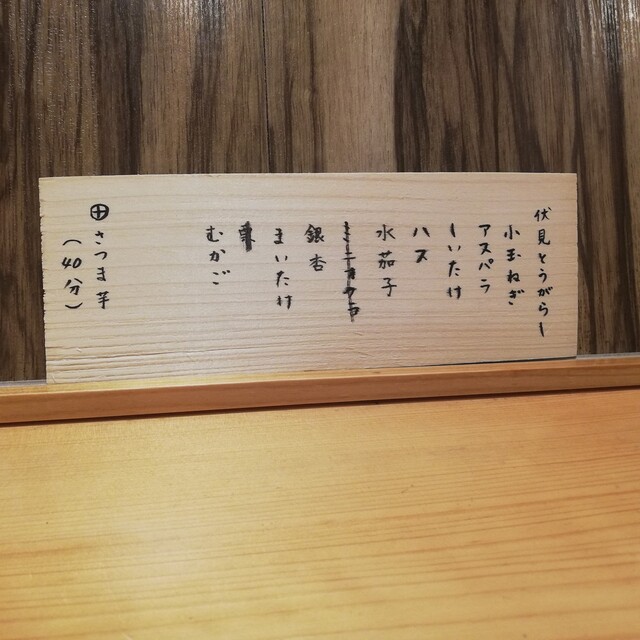 伏見とうがらし
小玉ねぎ
アスパラ
しいたけ
ハス
水茄子
銀杏
まいたけ
むかご
⊕さつま芋
(40分)